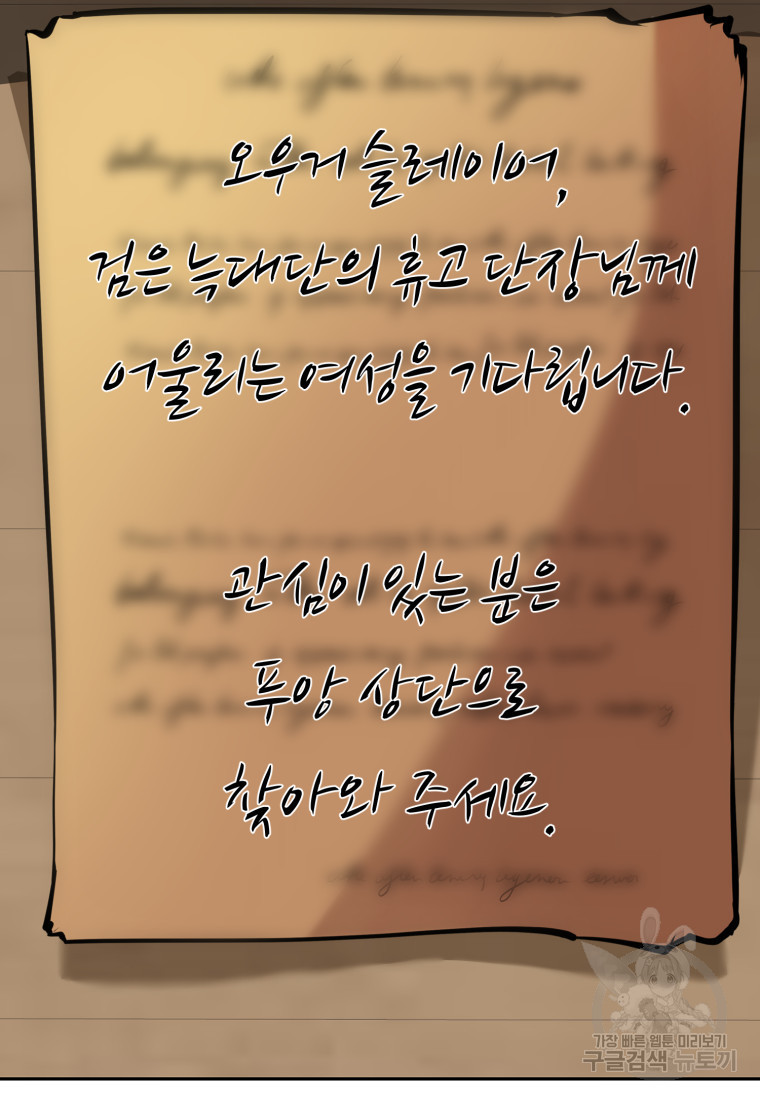 오우거 슬레이어,
검은 늑대단의 휴고 단장님께
어울리는 여성을 기다립니다.
관심이 있는 분은
푸앙 상단으로
찾아와 주세요.
가장 빠른 웹툰 미리보기
구글검색 뉴토끼